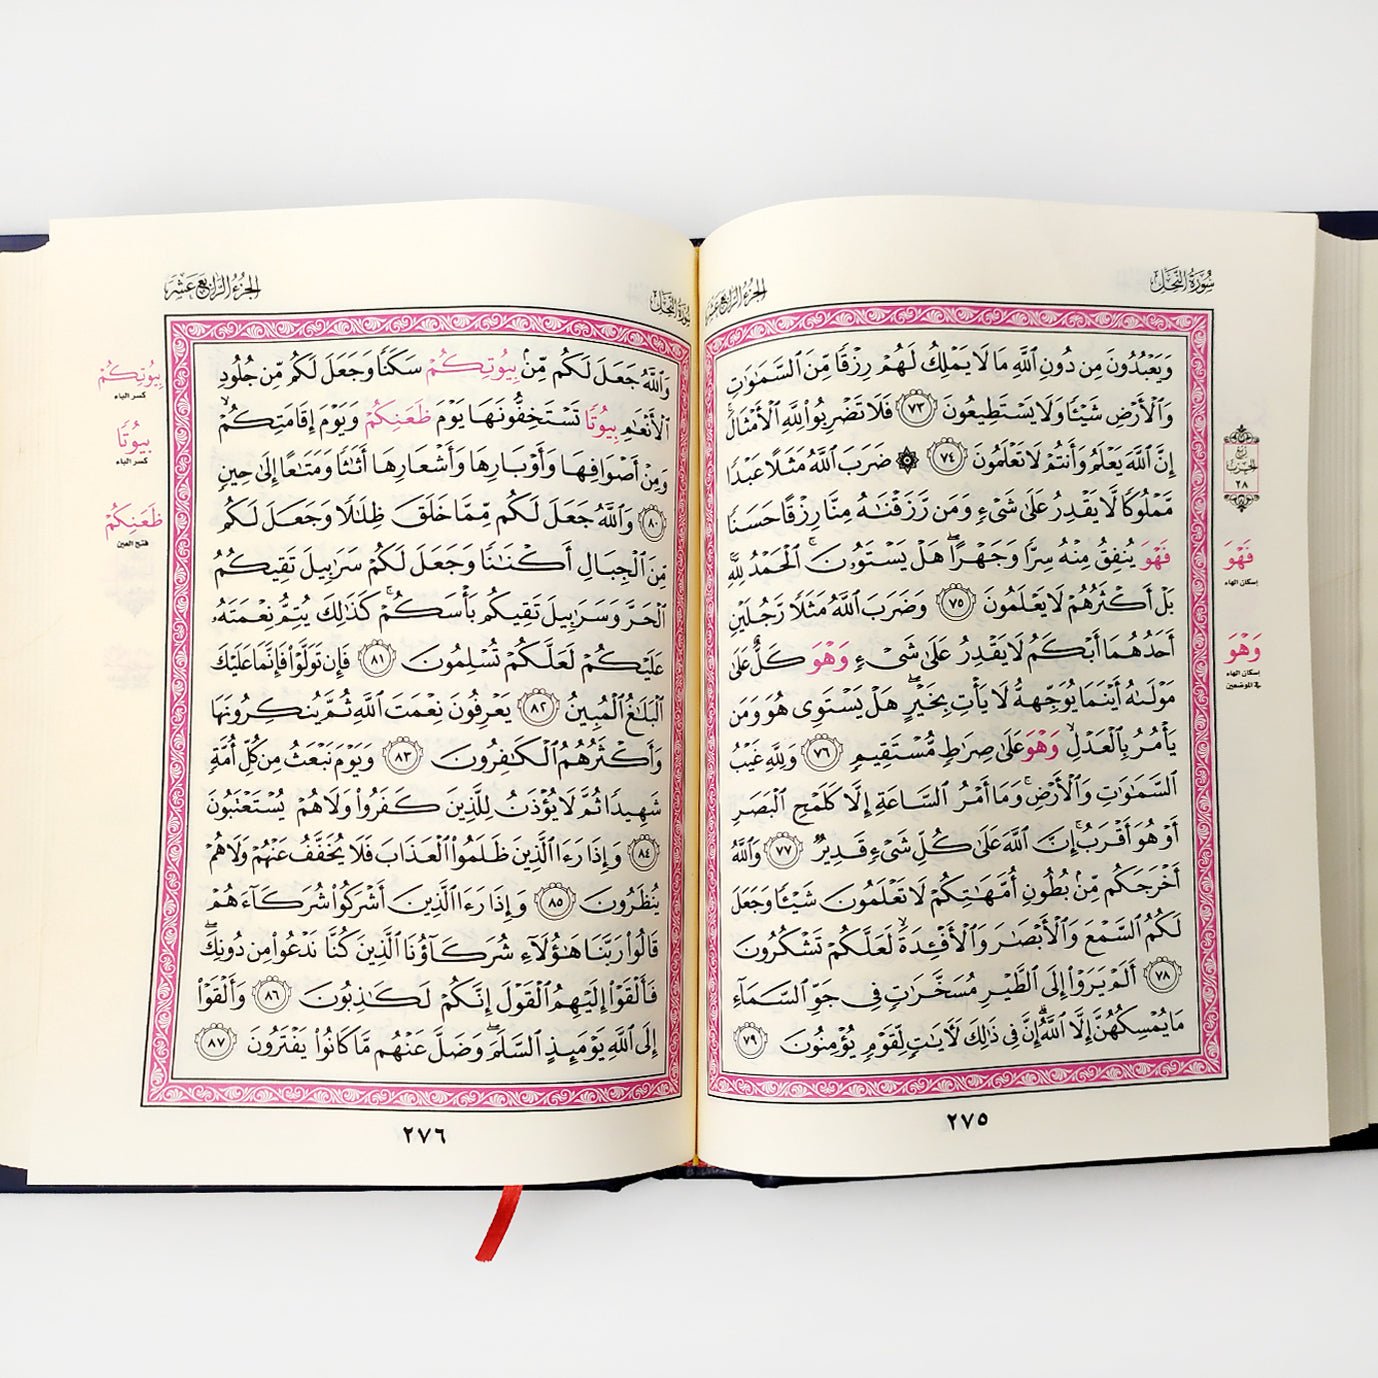 سُورَةُ النَّحْلِ
الجُزْءُ الرَّابِعَ عَشَرَ
وَيَعْبُدُونَ مِن دُونِ ٱللَّهِ مَا لَا يَمْلِكُ لَهُمْ رِزْقًا مِّنَ ٱلسَّمَٰوَٰتِ
وَٱلْأَرْضِ شَيْـًٔا وَلَا يَسْتَطِيعُونَ ٧٣ فَلَا تَضْرِبُوا۟ لِلَّهِ ٱلْأَمْثَالَ ۚ
إِنَّ ٱللَّهَ يَعْلَمُ وَأَنتُمْ لَا تَعْلَمُونَ ٧٤ ۞ ضَرَبَ ٱللَّهُ مَثَلًا عَبْدًا
مَّمْلُوكًا لَّا يَقْدِرُ عَلَىٰ شَىْءٍ وَمَن رَّزَقْنَٰهُ مِنَّا رِزْقًا حَسَنًا
فَهْوَ يُنفِقُ مِنْهُ سِرًّا وَجَهْرًا ۖ هَلْ يَسْتَوُۥنَ ۚ ٱلْحَمْدُ لِلَّهِ
بَلْ أَكْثَرُهُمْ لَا يَعْلَمُونَ ٧٥ وَضَرَبَ ٱللَّهُ مَثَلًا رَّجُلَيْنِ
أَحَدُهُمَا أَبْكَمُ لَا يَقْدِرُ عَلَىٰ شَىْءٍ وَهْوَ كَلٌّ عَلَىٰ
مَوْلَىٰهُ أَيْنَمَا يُوَجِّههُّ لَا يَأْتِ بِخَيْرٍ ۖ هَلْ يَسْتَوِى هُوَ وَمَن
يَأْمُرُ بِٱلْعَدْلِ ۙ وَهْوَ عَلَىٰ صِرَٰطٍ مُّسْتَقِيمٍ ٧٦ وَلِلَّهِ غَيْبُ
ٱلسَّمَٰوَٰتِ وَٱلْأَرْضِ ۚ وَمَا أَمْرُ ٱلسَّاعَةِ إِلَّا كَلَمْحِ ٱلْبَصَرِ
أَوْ هُوَ أَقْرَبُ ۚ إِنَّ ٱللَّهَ عَلَىٰ كُلِّ شَىْءٍ قَدِيرٌ ٧٧ وَٱللَّهُ
أَخْرَجَكُم مِّنۢ بُطُونِ أُمَّهَٰتِكُمْ لَا تَعْلَمُونَ شَيْـًٔا وَجَعَلَ
لَكُمُ ٱلسَّمْعَ وَٱلْأَبْصَٰرَ وَٱلْأَفْـِٔدَةَ ۙ لَعَلَّكُمْ تَشْكُرُونَ
٧٨ أَلَمْ يَرَوْا۟ إِلَى ٱلطَّيْرِ مُسَخَّرَٰتٍ فِى جَوِّ ٱلسَّمَآءِ
مَا يُمْسِكُهُنَّ إِلَّا ٱللَّهُ ۗ إِنَّ فِى ذَٰلِكَ لَآيَٰتٍ لِّقَوْمٍ يُؤْمِنُونَ ٧٩
رُبْعُ
الحِزْبِ
٢٨
فَهْوَ
إسكان الهاء
وَهْوَ
إسكان الهاء
في الموضعين
٢٧٥
سُورَةُ النَّحْلِ
الجُزْءُ الرَّابِعَ عَشَرَ
وَٱللَّهُ جَعَلَ لَكُم مِّنۢ بِيُوتِكُمْ سَكَنًا وَجَعَلَ لَكُم مِّن جُلُودِ
ٱلْأَنْعَٰمِ بِيُوتًا تَسْتَخِفُّونَهَا يَوْمَ ظَعَنِكُمْ وَيَوْمَ إِقَامَتِكُمْ ۙ
وَمِنْ أَصْوَافِهَا وَأَوْبَارِهَا وَأَشْعَارِهَا أَثَٰثًا وَمَتَٰعًا إِلَىٰ حِينٍ
٨٠ وَٱللَّهُ جَعَلَ لَكُم مِّمَّا خَلَقَ ظِلَٰلًا وَجَعَلَ لَكُم
مِّنَ ٱلْجِبَالِ أَكْنَٰنًا وَجَعَلَ لَكُمْ سَرَٰبِيلَ تَقِيكُمُ
ٱلْحَرَّ وَسَرَٰبِيلَ تَقِيكُم بَأْسَكُمْ ۚ كَذَٰلِكَ يُتِمُّ نِعْمَتَهُۥ
عَلَيْكُمْ لَعَلَّكُمْ تُسْلِمُونَ ٨١ فَإِن تَوَلَّوْا۟ فَإِنَّمَا عَلَيْكَ
ٱلْبَلَٰغُ ٱلْمُبِينُ ٨٢ يَعْرِفُونَ نِعْمَتَ ٱللَّهِ ثُمَّ يُنكِرُونَهَا
وَأَكْثَرُهُمُ ٱلْكَٰفِرُونَ ٨٣ وَيَوْمَ نَبْعَثُ مِن كُلِّ أُمَّةٍ
شَهِيدًا ثُمَّ لَا يُؤْذَنُ لِلَّذِينَ كَفَرُوا۟ وَلَا هُمْ يُسْتَعْتَبُونَ
٨٤ وَإِذَا رَءَا ٱلَّذِينَ ظَلَمُوا۟ ٱلْعَذَابَ فَلَا يُخَفَّفُ عَنْهُمْ وَلَا هُمْ
يُنظَرُونَ ٨٥ وَإِذَا رَءَا ٱلَّذِينَ أَشْرَكُوا۟ شُرَكَآءَهُمْ
قَالُوا۟ رَبَّنَا هَٰٓؤُلَآءِ شُرَكَآؤُنَا ٱلَّذِينَ كُنَّا نَدْعُوا۟ مِن دُونِكَ ۖ
فَأَلْقَوْا۟ إِلَيْهِمُ ٱلْقَوْلَ إِنَّكُمْ لَكَٰذِبُونَ ٨٦ وَأَلْقَوْا۟
إِلَى ٱللَّهِ يَوْمَئِذٍ ٱلسَّلَمَ ۖ وَضَلَّ عَنْهُم مَّا كَانُوا۟ يَفْتَرُونَ ٨٧
بِيُوتِكُمْ
كسر الباء
بِيُوتًا
كسر الباء
ظَعَنِكُمْ
فتح العين
٢٧٦